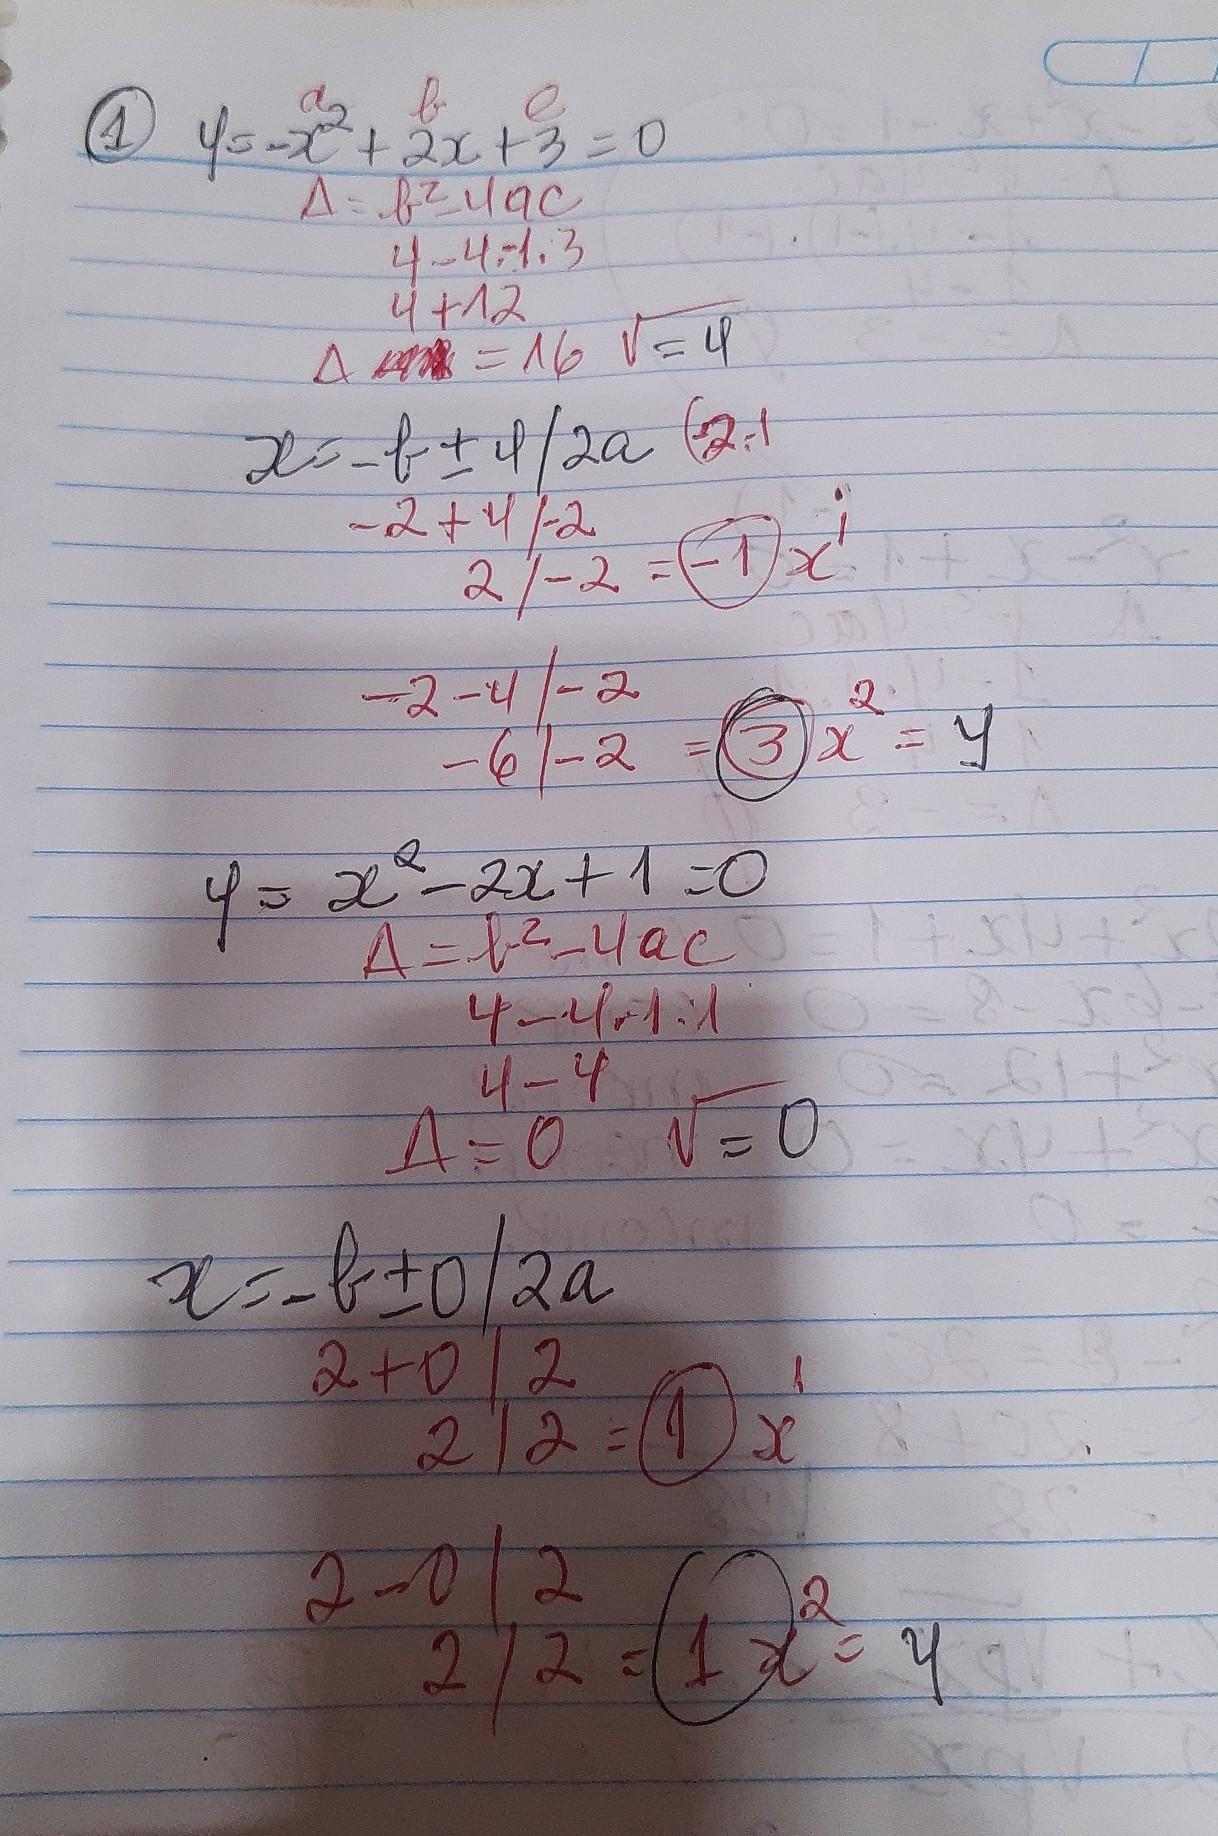 a b c
① y=-x²+2x+3=0
Δ=b²-4ac
4-4.-1.3
4+12
Δ =16 √=4
x=-b±4/2a (-2.1
-2+4/-2
2/-2=-1 x¹
-2-4/-2
-6/-2 =3 x²=y
y= x²-2x+1=0
Δ=b²-4ac
4-4.1.1
4-4
Δ=0 √=0
x=-b±0/2a
2+0/2
2/2=1 x¹
2-0/2
2/2=1x²=y